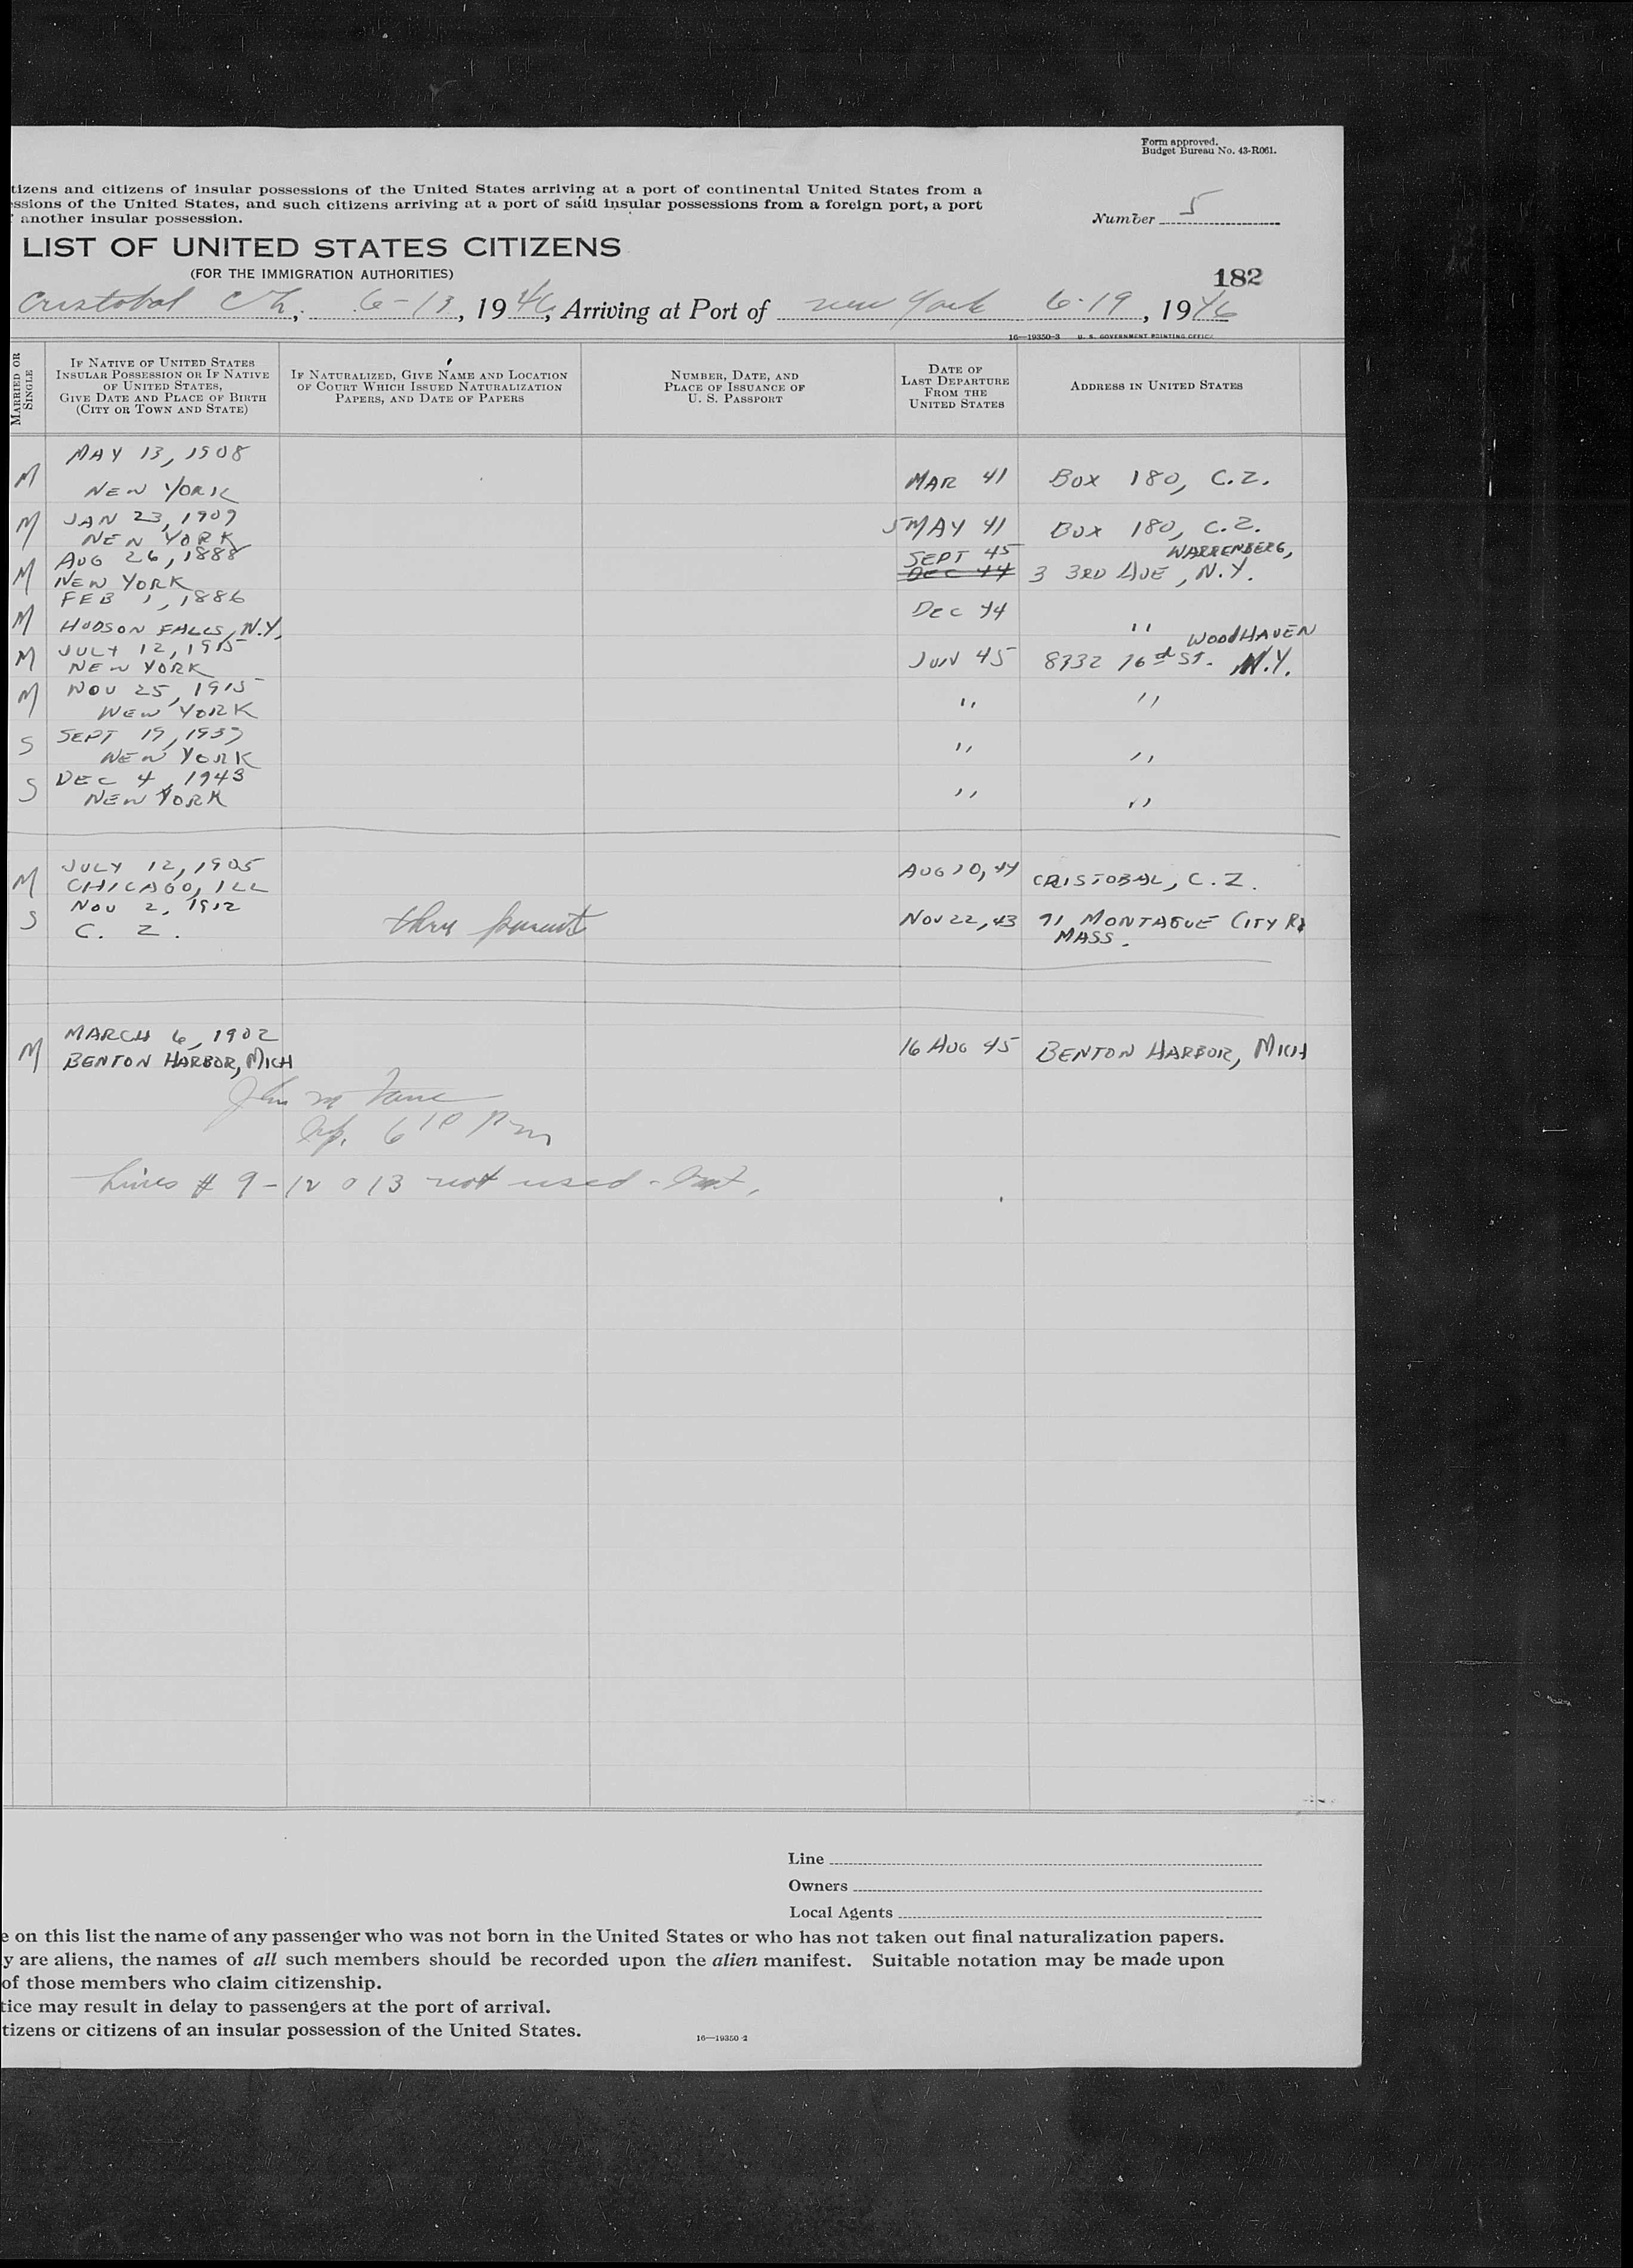 Form approved.
Budget Bureau No. 43-R061.
tizens and citizens of insular possessions of the United States arriving at a port of continental United States from a
ssions of the United States, and such citizens arriving at a port of said insular possessions from a foreign port, a port
another insular possession.
Number 5
LIST OF UNITED STATES CITIZENS
(FOR THE IMMIGRATION AUTHORITIES)
182
Cristobal CZ, 6-13, 1946, Arriving at Port of new York 6-19, 1946
16—19350-3 U. S. GOVERNMENT PRINTING OFFICE
MARRIED OR SINGLE
IF NATIVE OF UNITED STATES INSULAR POSSESSION OR IF NATIVE OF UNITED STATES, GIVE DATE AND PLACE OF BIRTH (CITY OR TOWN AND STATE)
IF NATURALIZED, GIVE NAME AND LOCATION OF COURT WHICH ISSUED NATURALIZATION PAPERS, AND DATE OF PAPERS
NUMBER, DATE, AND PLACE OF ISSUANCE OF U. S. PASSPORT
DATE OF LAST DEPARTURE FROM THE UNITED STATES
ADDRESS IN UNITED STATES
MAY 13, 1908
M NEW YORK MAR 41 BOX 180, C.Z.
M JAN 23, 1909 5 MAY 41 BOX 180, C.Z.
NEW YORK
AUG 26, 1888 SEPT 45 WARRENBERG,
M NEW YORK DEC 44 3 3RD AVE, N.Y.
FEB 1, 1886
M HUDSON FALLS, N.Y. DEC 44 "
JULY 12, 1915 WOODHAVEN
M NEW YORK JUN 45 8732 76d ST. N.Y.
M NOV 25, 1915 " "
NEW YORK
S SEPT 19, 1937 " "
NEW YORK
S DEC 4, 1943 " "
NEW YORK
JULY 12, 1905
M CHICAGO, ILL AUG 10, 44 CRISTOBAL, C.Z.
S NOV 2, 1912 thru parents NOV 22, 43 71 MONTAGUE CITY RD
C. Z. MASS.
MARCH 6, 1902
M BENTON HARBOR, MICH 16 AUG 45 BENTON HARBOR, MICH
John M
Insp. 6 10 PM
Lines # 9-12 & 13 not used -
Line
Owners
Local Agents
e on this list the name of any passenger who was not born in the United States or who has not taken out final naturalization papers.
y are aliens, the names of all such members should be recorded upon the alien manifest. Suitable notation may be made upon
of those members who claim citizenship.
tice may result in delay to passengers at the port of arrival.
tizens or citizens of an insular possession of the United States.
16—19350-2